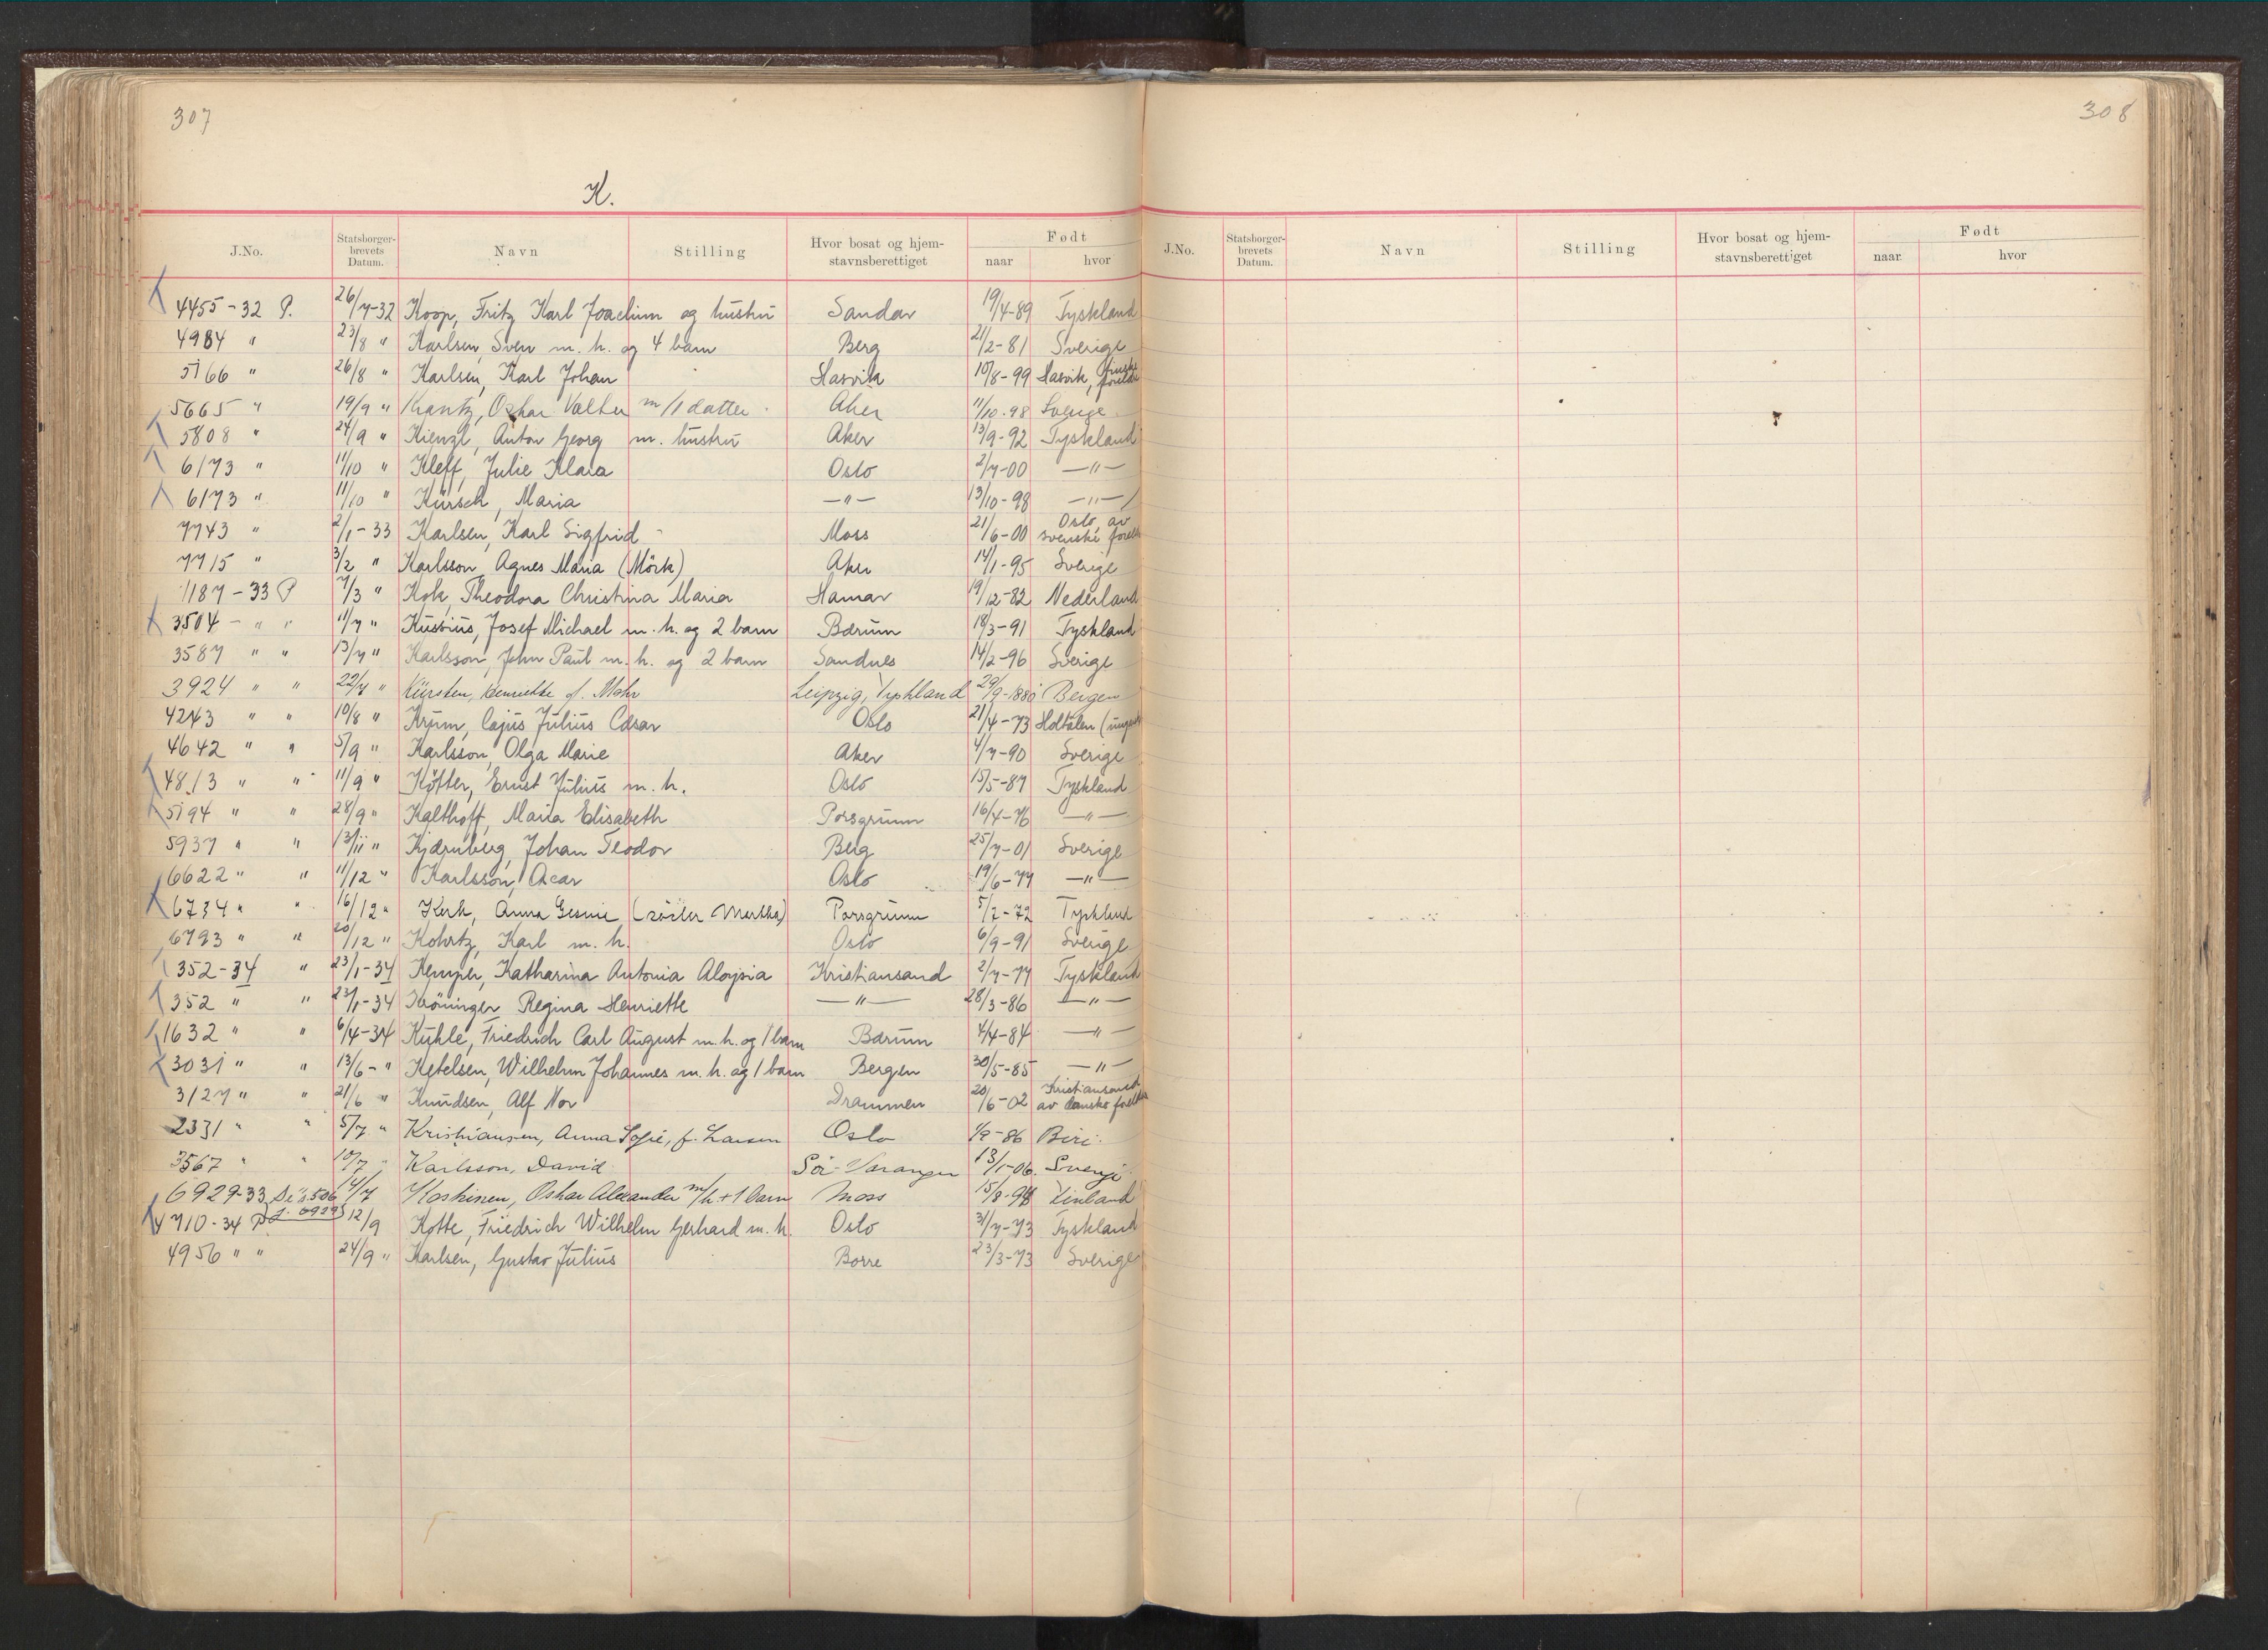 307
K.
J.No. Statsborger-brevets Datum. Navn Stilling Hvor bosat og hjem-stavnsberettiget Født naar hvor
4455-32 P. 26/7-32 Koop, Fritz Karl Joachim og hustru Sandar 19/4-89 Tyskland
4984 " 23/8 " Karlsen, Sven m. h. og 4 barn Berg 21/2-81 Sverige
5166 " 26/8 " Karlsen, Karl Johan Hasvik 10/8-99 Hasvik, finske foreldre
5665 " 19/9 " Krantz, Oskar Valter m/1 datter Aker 11/10.98 Sverige
5808 " 24/9 " Kienzl, Anton Georg m. hustru Aker 13/9-92 Tyskland
6173 " 11/10 " Kleff, Julie Klara Oslo 2/7-00 —"—
6173 " 11/10 " Kürsch, Maria —"— 13/10-98 —"—
7743 " 2/1-33 Karlsen, Karl Sigfrid Moss 21/6-00 Oslo, av svenske foreldre
7715 " 3/2 " Karlsson, Agnes Maria (Mörk) Aker 14/1-95 Sverige
1187-33 P 7/3 " Kok, Theodora Christina Maria Hamar 19/12-82 Nederland
3504 - " " 11/7 " Kusius, Josef Michael m. h. og 2 barn Bærum 18/3-91 Tyskland
3587 " " 13/7 " Karlsson, John Paul m. h. og 2 barn Sandnes 14/2-96 Sverige
3924 " " 22/7 " Kürsten, Henriette f. Mohr Leipzig, Tyskland 29/9-1880 Bergen
4243 " " 10/8 " Krum, Cajus Julius Cæsar Oslo 21/4-73 Holtålen
4642 " " 5/9 " Karlsson, Olga Marie Aker 4/7-90 Sverige
4813 " " 11/9 " Köfter, Ernst Julius m. h. Oslo 15/5-87 Tyskland
5194 " " 28/9 " Kalthoff, Maria Elisabeth Porsgrunn 16/4-76 —"—
5937 " " 13/11 " Kjærnberg, Johan Teodor Berg 25/7-01 Sverige
6622 " " 11/12 " Karlsson, Oscar Oslo 19/6-77 —"—
6734 " " 16/12 " Kerk, Anna Gesine (söster Martha) Porsgrunn 5/7-72 Tyskland
6793 " " 20/12 " Kohrtz, Karl m. h. Oslo 6/9-91 Sverige
352-34 " 23/1-34 Kemper, Katharina Antonia Aloysia Kristiansand 2/7-77 Tyskland
352 " " 23/1-34 Kröninger Regina Henriette —"— 28/3-86 —"—
1632 " " 6/4-34 Kuhle, Friedrich Carl August m. h. og 1 barn Bærum 4/4-84 —"—
3031 " " 13/6 - " Ketelsen, Wilhelm Johannes m. h. og 1 barn Bergen 30/5-85 —"—
3127 " " 21/6 " Knudsen, Alf Nor Drammen 20/6-02 Kristiansand av danske foreldre
2331 " " 5/7 " Kristiansen, Anna Sofie, f. Larsen Oslo 1/9-86 Biri.
3567 " " 10/7 " Karlsson, David Sör-Varanger 13/1-06. Sverige
6929-33 14/7 Koskinen, Oskar Alexander m/h + 1 barn Moss 15/8-98 Finland
4710-34 P 12/9 Kotte, Friedrich Wilhelm Gerhard m. h. Oslo 31/7-73 Tyskland
4956 " " 24/9 " Karlsen, Gustav Julius Borre 23/3-73 Sverige
308
J.No. Statsborger-brevets Datum. Navn Stilling Hvor bosat og hjem-stavnsberettiget Født naar hvor